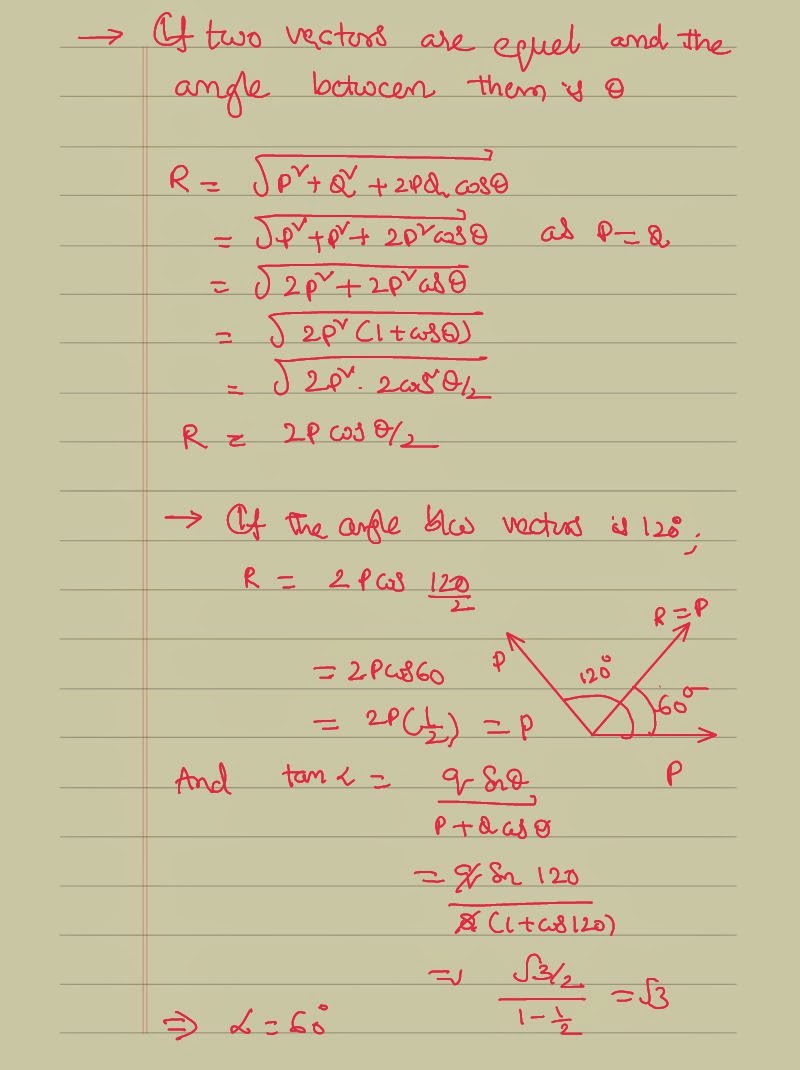 → If two vectors are equel and the
angle between them is θ
R = √P²+Q²+2PQ cosθ
= √P²+P²+2P²cosθ as P=Q
= √2P²+2P²cosθ
= √2P²(1+cosθ)
= √2P².2cos²θ/2
R = 2P cos θ/2
→ If the angle b/w vectors is 120°;
R = 2Pcos 120/2
R=P
P 120° 60°
= 2Pcos60
= 2P(1/2) = P
P
And tan α = q Sinθ / P+Q cosθ
= q Sin 120 / Q (1+cos120)
=> √3/2 / 1-1/2 = √3
⇒ α = 60°